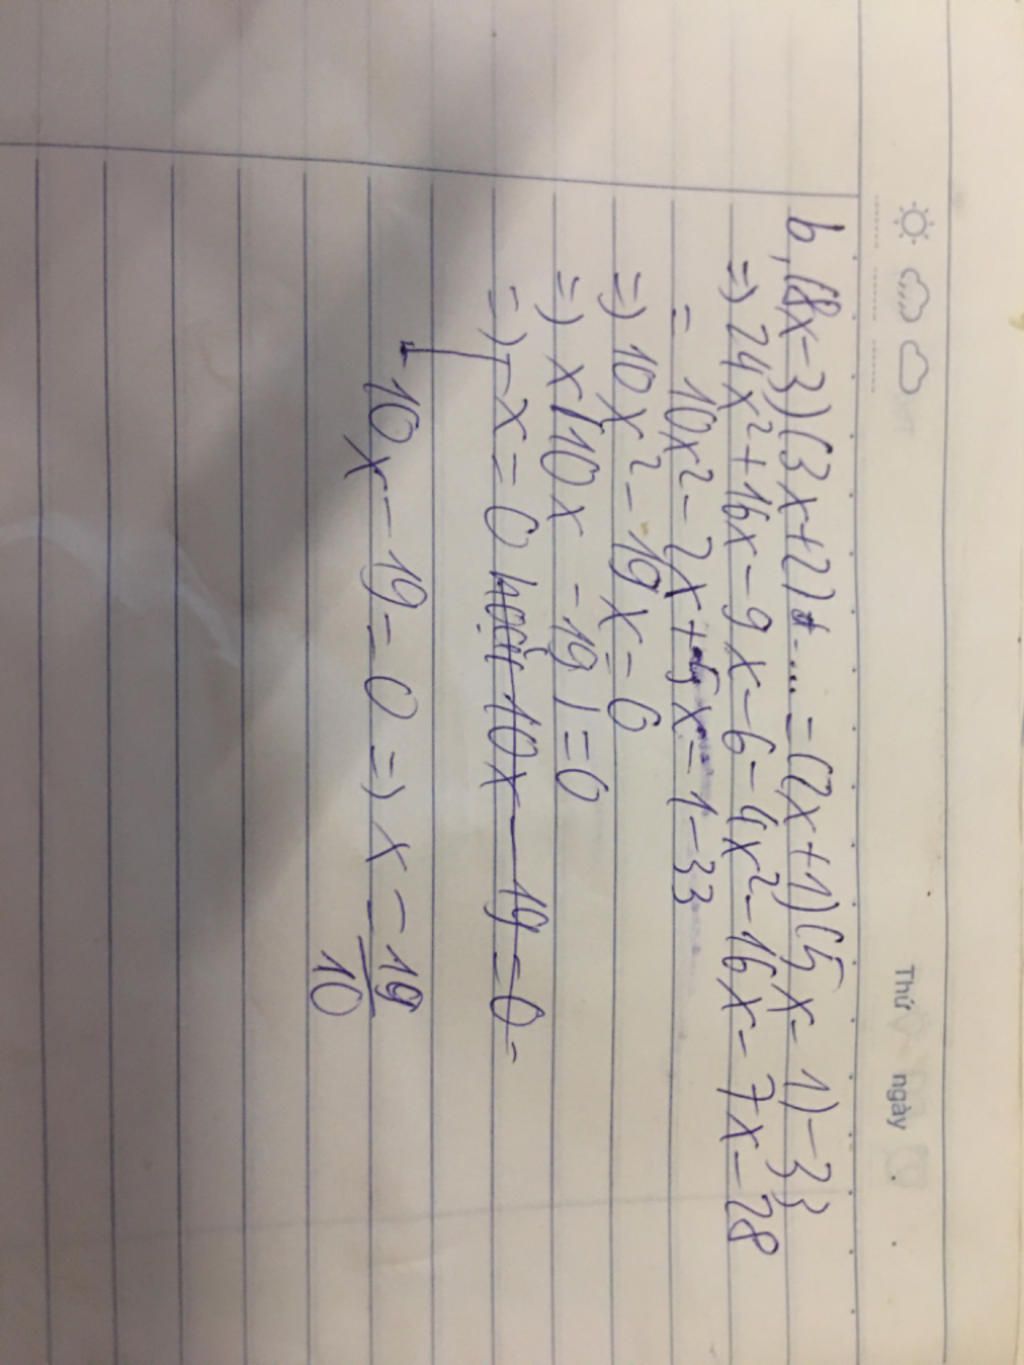 Thứ ngày
b, (8x-3)(3x+2) - ... = (2x+1)(5x-1)-33
=> 24x² + 16x - 9x - 6 - 4x² - 16x - 7x - 28
= 10x² - 2x + 5x - 1 - 33
=> 10x² - 19x = 0
=> x(10x - 19) = 0
=> x = 0 hoặc 10x - 19 = 0
10x - 19 = 0 => x = 19/10